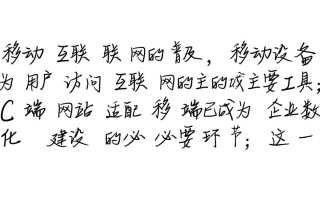 移动 互联 联 网的普及，移动设备
为 用户 访问 互联 网的主的或主要工具；
C 端 网站 适配 移 端已成为 企业数
化 建设 的必 必要环节；这一